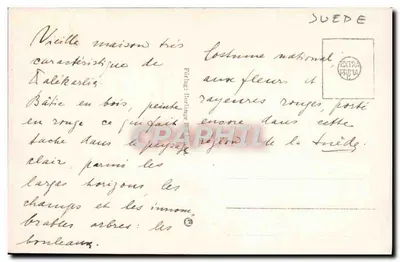 SUEDE
Vieille maison très
caractéristique de
Dalékarlie
Bâtie en bois, peinte
en rouge ce qui fait
tache dans le paysage
clair, parmi les
larges horizons, les
champs et les innom
brables arbres : les
bouleaux.
Costume national,
aux fleurs et
rayeures rouges, porté
encore dans cette
région de la Suède.
EXTRA
CPARAMA